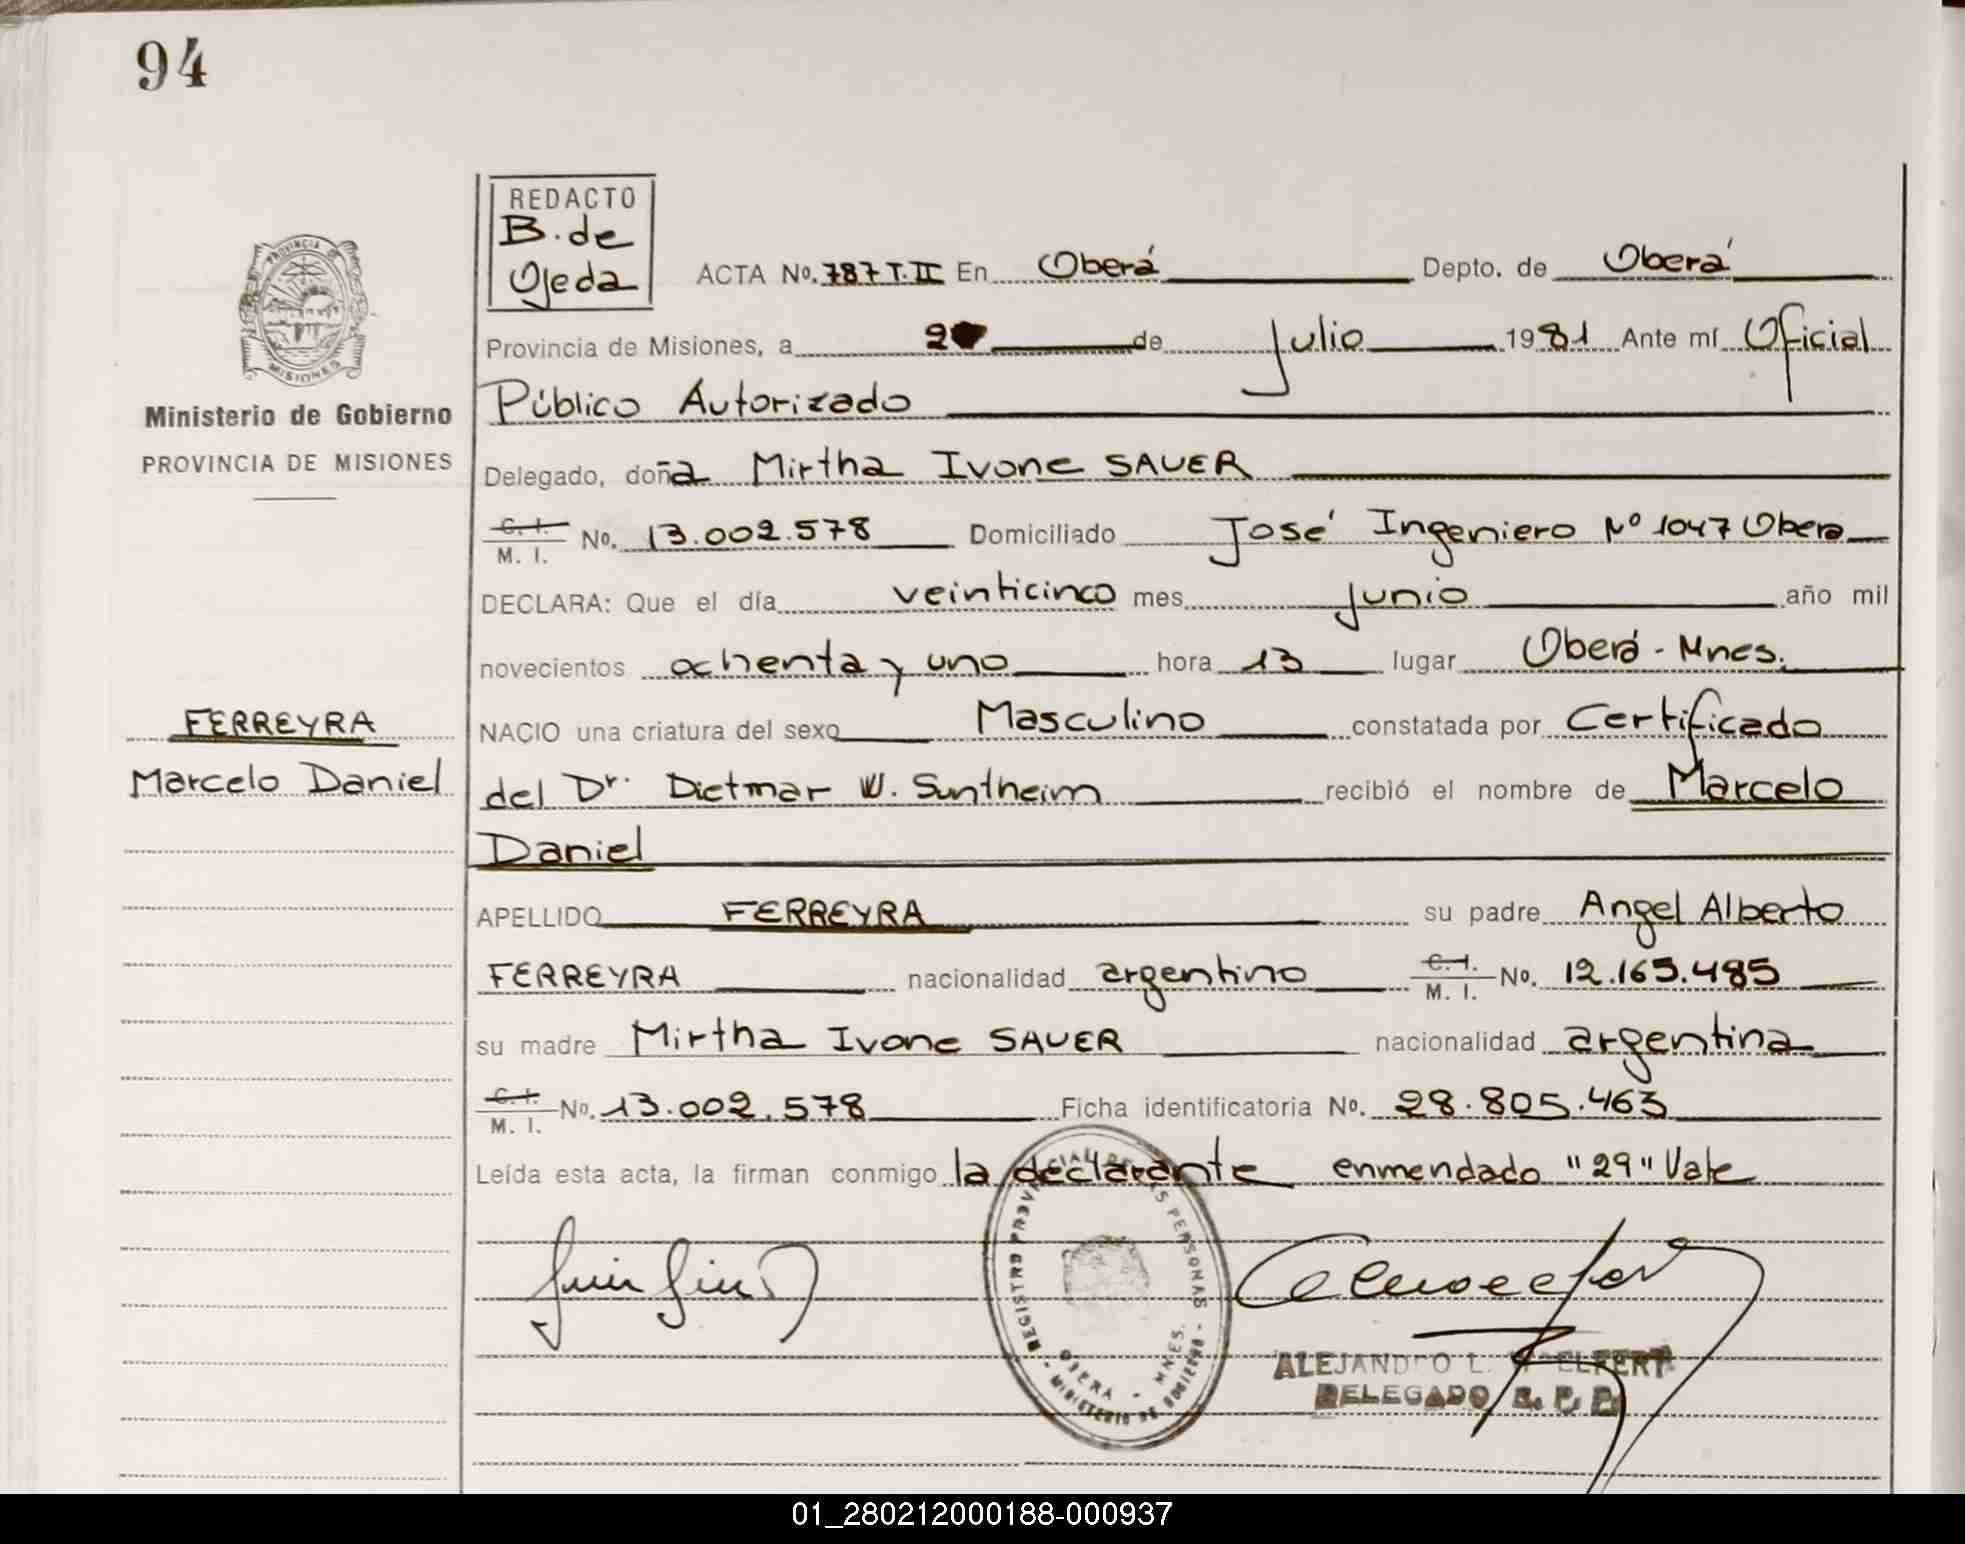 94
PROVINCIA DE
MISIONES
Ministerio de Gobierno
PROVINCIA DE MISIONES
FERREYRA
Marcelo Daniel
REDACTO
B. de
Ojeda
ACTA No. 787 T. II En Oberá Depto. de Oberá
Provincia de Misiones, a 2 de Julio 1981 Ante mí Oficial
Público Autorizado
Delegado, doña Mirtha Ivone SAUER
C. I.
M. I. No. 13.002.578 Domiciliado José Ingeniero Nº 1047 Obera
DECLARA: Que el día veinticinco mes junio año mil
novecientos ochenta y uno hora 13 lugar Oberá - Mnes.
NACIO una criatura del sexo Masculino constatada por Certificado
del Dr. Dietmar W. Suntheim recibió el nombre de Marcelo
Daniel
APELLIDO FERREYRA su padre Angel Alberto
FERREYRA nacionalidad argentino C. I.
M. I. No. 12.165.485
su madre Mirtha Ivone SAUER nacionalidad argentina
C. I.
M. I. No. 13.002.578 Ficha identificatoria No. 28.805.463
Leída esta acta, la firman conmigo la declarante enmendado "29" Vale
REGISTRO PROVINCIAL DE LAS PERSONAS
OBERA - MNES.
- MINISTERIO DE GOBIERNO -
ALEJANDRO L.
DELEGADO
01_280212000188-000937